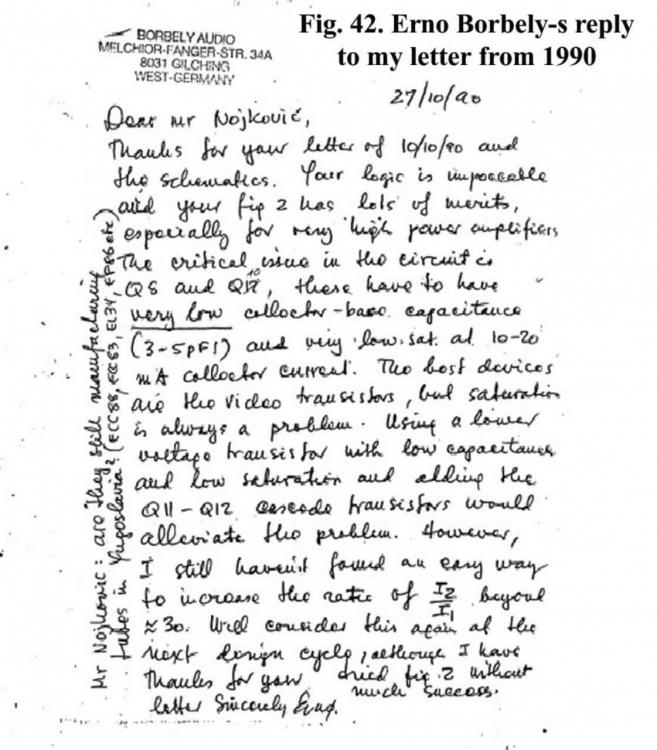 Fig. 42. Erno Borbely-s reply
to my letter from 1990
BORBELY AUDIO
MELCHIOR-FANGER-STR. 34A
8031 GILCHING
WEST-GERMANY
27/10/90
Dear Mr Nojković,
Thanks for your letter of 10/10/90 and
the schematics. Your logic is impeccable
and your fig 2 has lots of merits,
especially for very high power amplifiers
The critical issue in the circuit is
Q8 and Q10, these have to have
very low collector-base capacitance
(3-5pF!) and very low sat. at 10-20
mA collector current. The best devices
are the video transistors, but saturation
is always a problem. Using a lower
voltage transistor with low capacitance
and low saturation and adding the
Q11-Q12 cascode transistors would
alleviate the problem. However,
I still haven't found an easy way
to increase the ratio of I2/I1 beyond
≈30. Will consider this again at the
next design cycle, although I have
tried fig. 2 without
much success.
Thanks for your
letter Sincerely
Mr Nojkovic: are they still manufacturing
tubes in Yugoslavia? (ECC88, ECC83, EL34, EF86 etc)